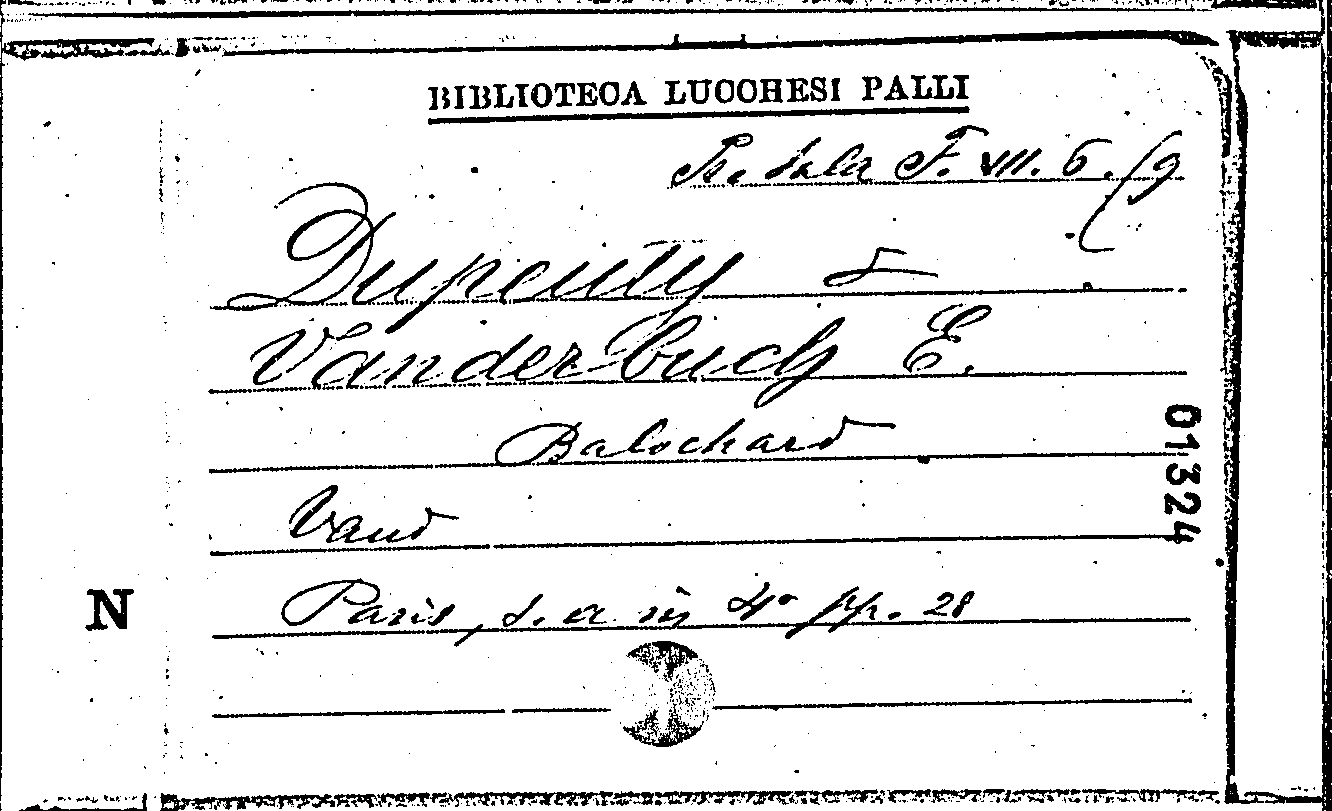 BIBLIOTECA LUCCHESI PALLI
Sala F. VII. 6. (9
Dupeuty &
Vanderbuch E.
Balochard
Vaud
Paris, s. a in 4° pp. 28
01324
N